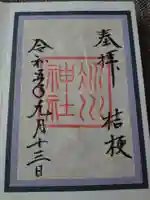 奉拝 桔梗
氷川
神社
令和五年九月十三日